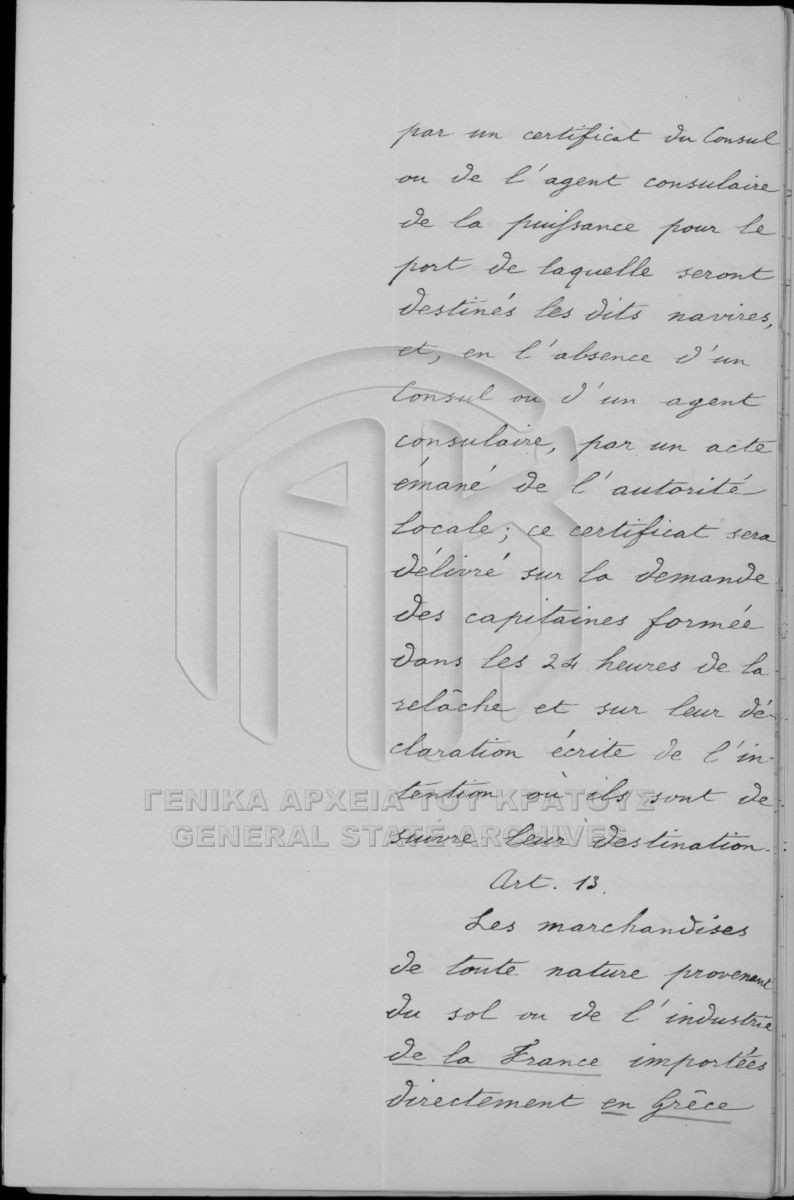 par un certificat du Consul
ou de l'agent consulaire
de la puissance pour le
port de laquelle seront
destinés les dits navires,
et, en l'absence d'un
Consul ou d'un agent
consulaire, par un acte
émané de l'autorité
locale; ce certificat sera
délivré sur la demande
des capitaines formée
dans les 24 heures de la
relâche et sur leur dé-
claration écrite de l'in-
tention où ils sont de
suivre leur destination.
Art. 13.
Les marchandises
de toute nature provenant
du sol ou de l'industrie
de la France importées
directement en Grèce
ΓΕΝΙΚΑ ΑΡΧΕΙΑ ΤΟΥ ΚΡΑΤΟΥΣ
GENERAL STATE ARCHIVES